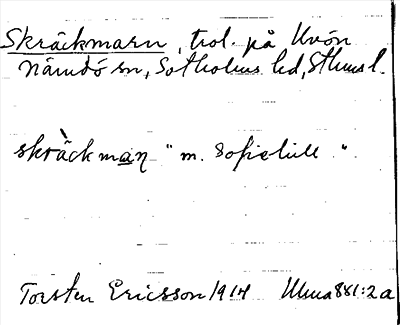 Skräckmarn, trol. på Uvön
Nämdö sn, Sotholms hd, Sthms l.
skrä̀ckman "m. Sofielill"
Torsten Ericsson 1914 Ulma 881:2a